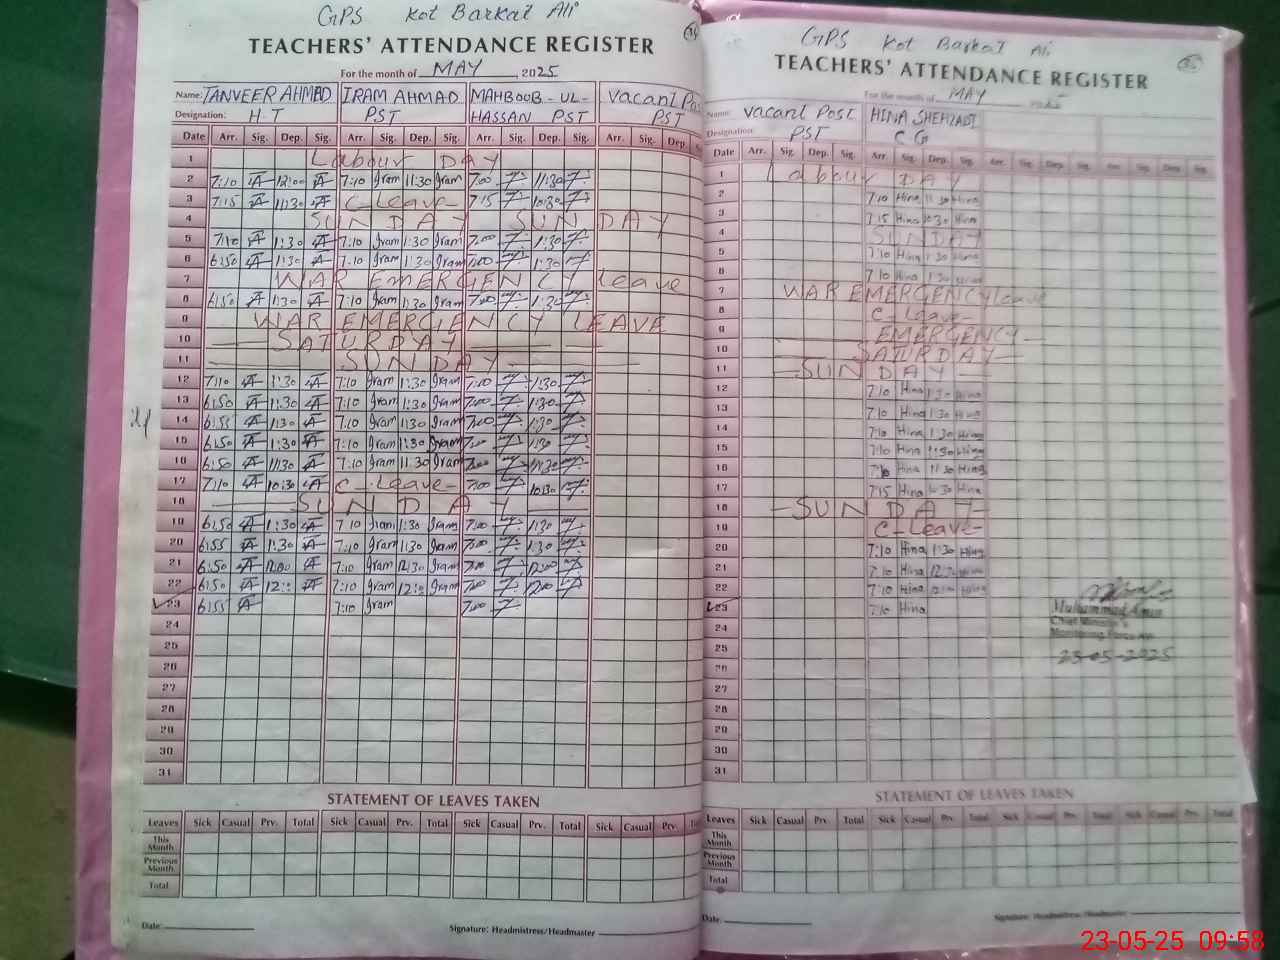 GPS Kot Barkat Ali
TEACHERS' ATTENDANCE REGISTER
For the month of MAY 2025
Name: TANVEER AHMED IRAM AHMAD MAHBOOB-UL- Vacant Post
Designation: H T PST HASSAN PST PST
Date Arr. Sig. Dep. Sig. Arr. Sig. Dep. Sig. Arr. Sig. Dep. Sig. Arr. Sig. Dep.
1 Labour DAY
2 7:10 12:00 7:10 Iram 11:30 Iram 7:00 11:30
3 7:15 11:30 C-Leave- 7:15 10:30
4 SUNDAY SUNDAY
5 7:10 1:30 7:10 Iram 1:30 Iram 7:00 1:30
6 6:50 1:30 7:10 Iram 1:30 Iram 7:00 1:30
7 WAR EMERGENCY Leave
8 6:50 1:30 7:10 Iram 1:30 Iram 7:00 1:30
9 WAR EMERGENCY LEAVE
10 SATURDAY
11 SUNDAY
12 7:10 1:30 7:10 Iram 1:30 Iram 7:10 1:30
13 6:50 1:30 7:10 Iram 1:30 Iram 7:00 1:30
14 6:55 1:30 7:10 Iram 1:30 Iram 7:00 1:30
15 6:50 1:30 7:10 Iram 1:30 Iram 7:00 1:30
16 6:50 11:30 7:10 Iram 11:30 Iram 7:00 11:30
17 7:10 10:30 C-Leave- 7:00 10:30
18 SUNDAY
19 6:50 1:30 7:10 Iram 1:30 Iram 7:00 1:30
20 6:55 1:30 7:10 Iram 1:30 Iram 7:00 1:30
21 6:50 7:10 Iram 12:30 Iram 7:00 12:00
22 6:50 7:10 Iram Iram 7:00 12:00
23 6:55 7:10 Iram 7:00
24
25
26
27
28
29
30
31
STATEMENT OF LEAVES TAKEN
Leaves Sick Casual Prv. Total Sick Casual Prv. Total Sick Casual Prv. Total Sick Casual Prv.
This Month
Previous Month
Total
Date:
Signature: Headmistress/Headmaster
GPS Kot Barkat Ali
TEACHERS' ATTENDANCE REGISTER
For the month of MAY
Name: Vacant Post HINA SHEHZADI
Designation: PST C G
Date Arr. Sig. Dep. Sig. Arr. Sig. Dep. Sig. Arr. Sig. Dep. Sig. Arr. Sig. Dep. Sig.
1 Labour DAY
2 7:10 Hina 11:30 Hina
3 7:15 Hina 10:30 Hina
4 SUNDAY
5 7:10 Hina 1:30 Hina
6 7:10 Hina 1:30 Hina
7 WAR EMERGENCY leave
8 C-Leave-
9 EMERGENCY
10 SATURDAY
11 SUNDAY
12 7:10 Hina 1:30 Hina
13 7:10 Hina 1:30 Hina
14 7:10 Hina 1:30 Hina
15 7:10 Hina 1:30 Hina
16 7:10 Hina 11:30 Hina
17 7:15 Hina 10:30 Hina
18 SUNDAY
19 C-Leave-
20 7:10 Hina 1:30 Hina
21 7:10 Hina Hina
22 7:10 Hina Hina
23 7:10 Hina
24
25
26
27
28
29
30
31
Muhammad
Chief Minister's
Monitoring Force
23-05-2025
STATEMENT OF LEAVES TAKEN
Leaves Sick Casual Prv. Total Sick Casual Prv. Total Sick Casual Prv. Total Sick Casual Prv. Total
This Month
Previous Month
Total
Date:
Signature: Headmistress/Headmaster
23-05-25 09:58